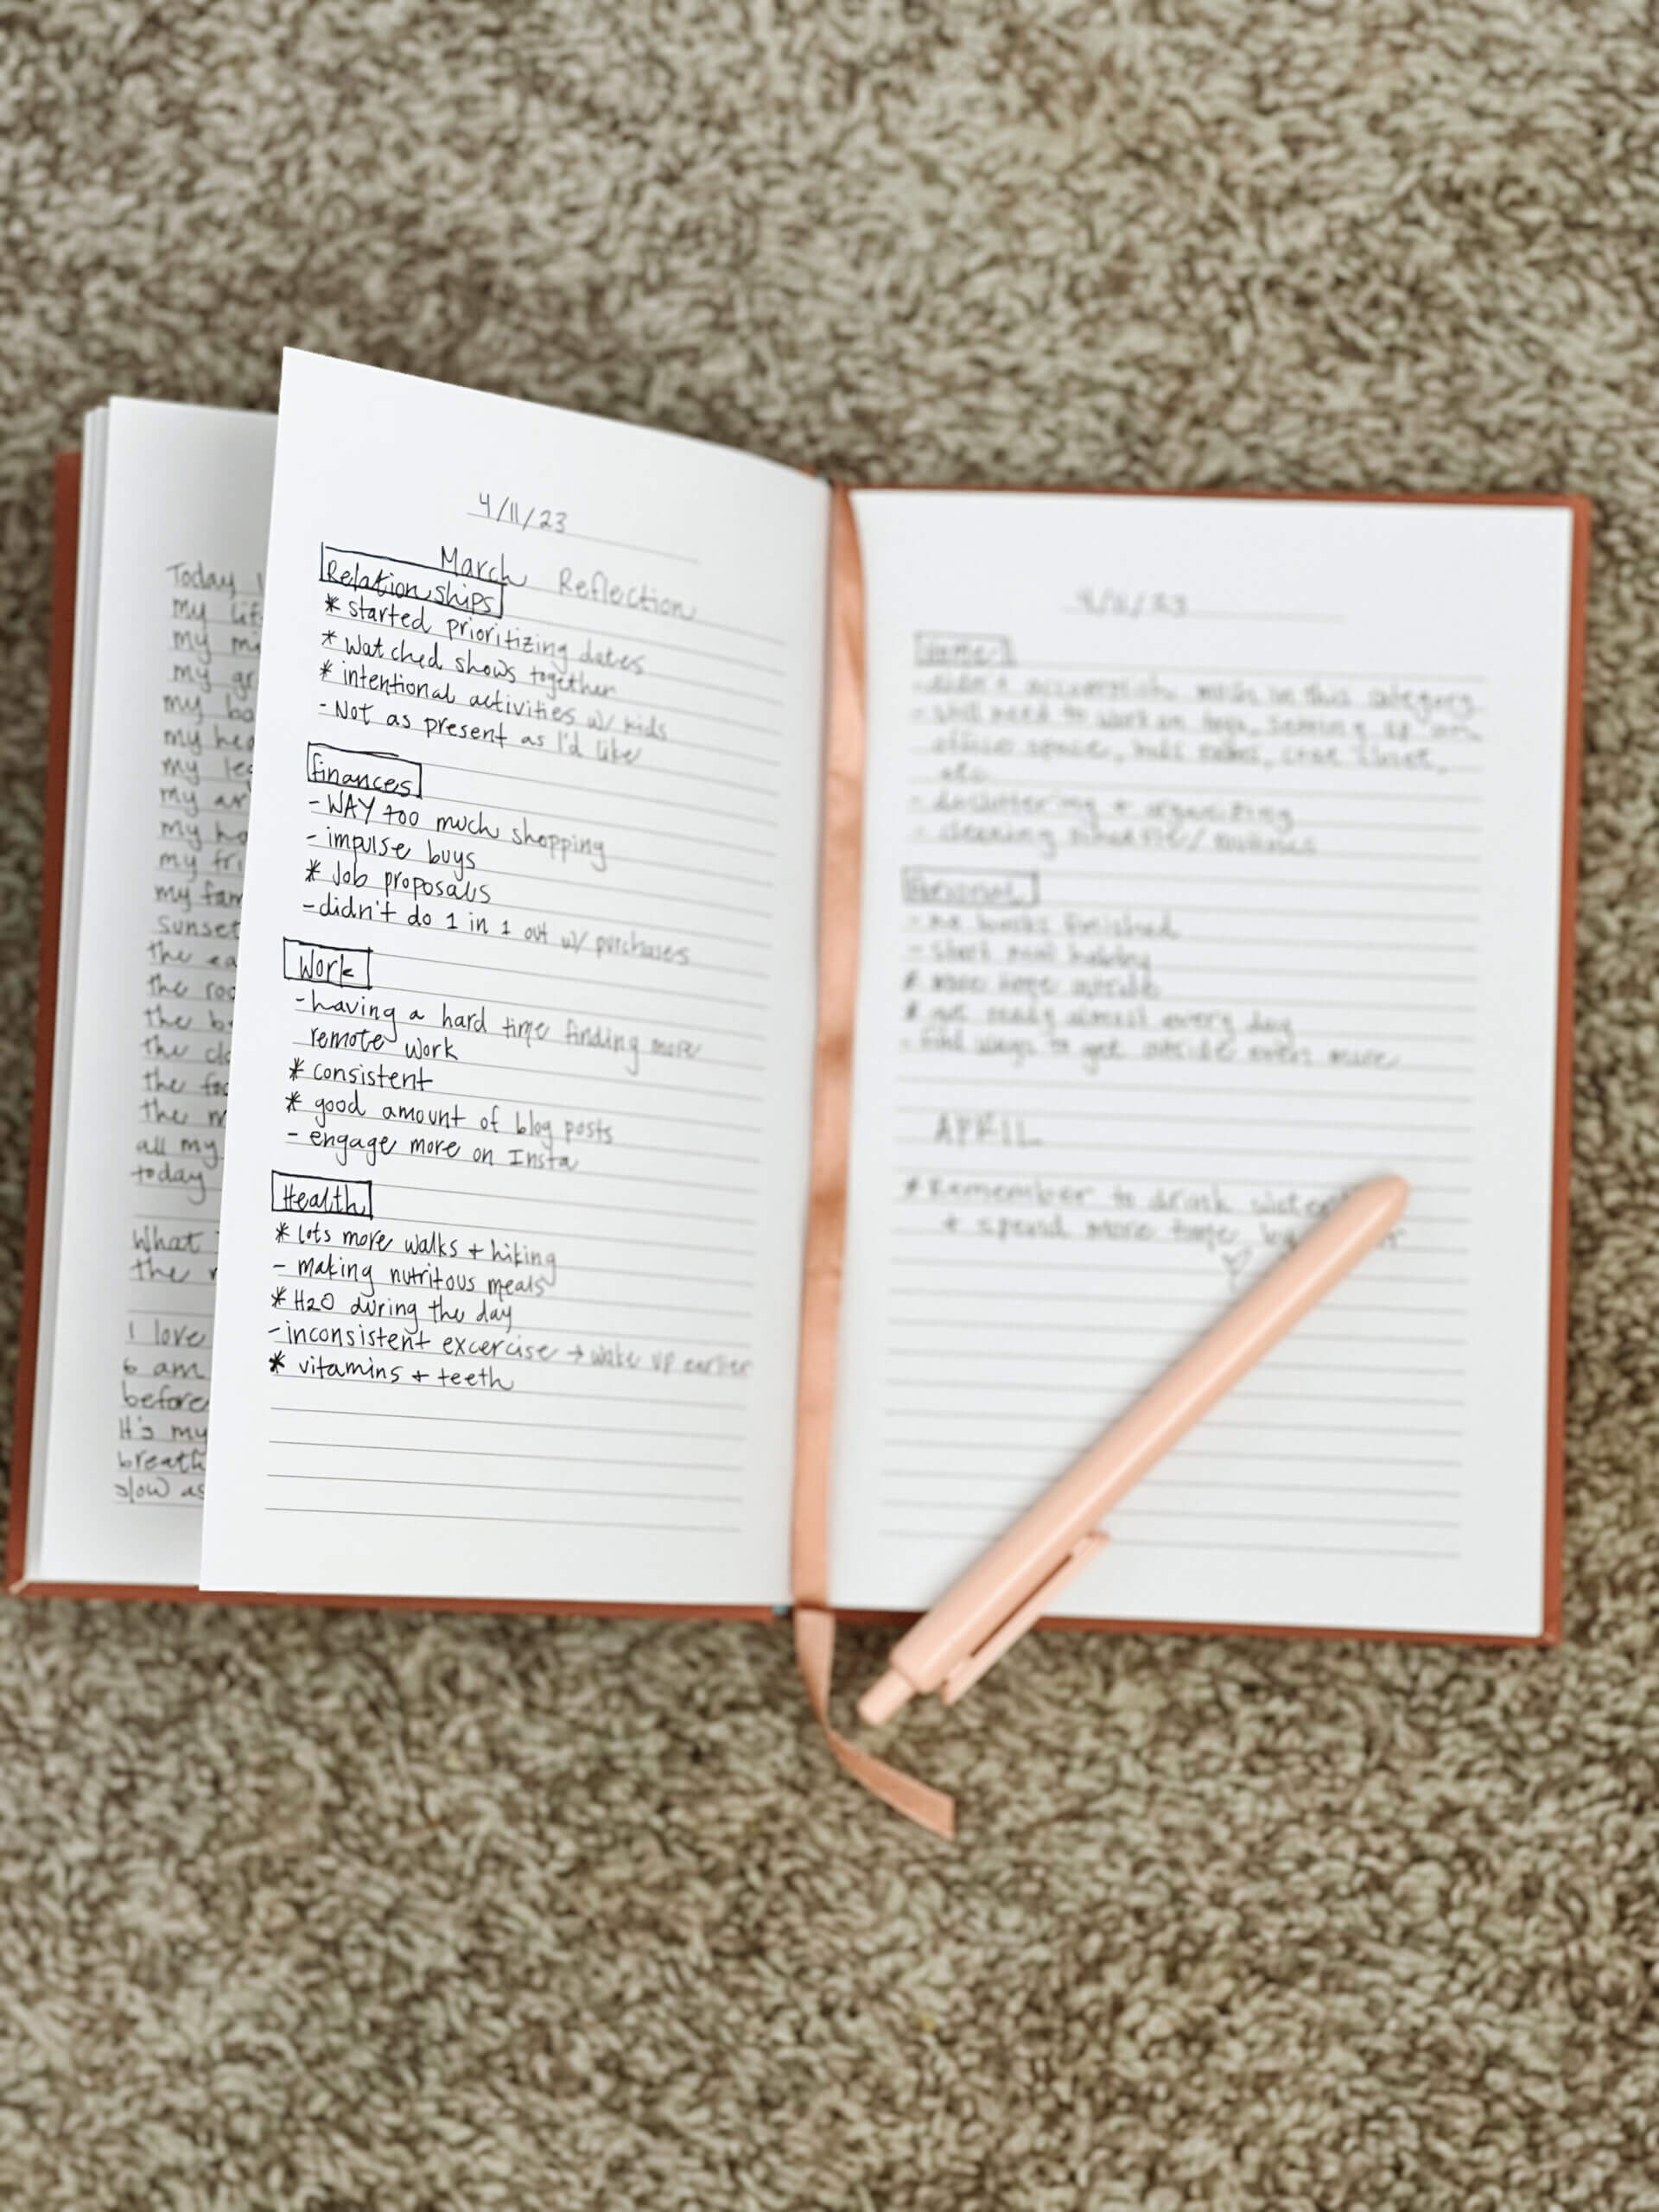 Today
my
my
my
my
my
my
my
my
my
my fam
sunset
the
the
the
the
the
the
all my
today
What
the
I love
6 am
before
It's my
breath
slow as
4/11/23
March Reflection
Relationships
* started prioritizing dates
* Watched shows together
* intentional activities w/ kids
- Not as present as I'd like
finances
- WAY too much shopping
- impulse buys
* Job proposals
- didn't do 1 in 1 out w/ purchases
Work
- having a hard time finding more
remote work
* consistent
* good amount of blog posts
- engage more on Insta
Health
* lots more walks + hiking
- making nutritous meals
* H2O during the day
- inconsistent excercise → wake up earlier
* vitamins + teeth
4/11/23
Home
- didn't accomplish much in this category
- still need to work on
office space, kids rooms, closet,
etc
- decluttering + organizing
- cleaning
Personal
- no books finished
- start new hobby
* more time outside
* got ready almost every day
- find ways to get outside even more
APRIL
* Remember to drink water
+ spend more time